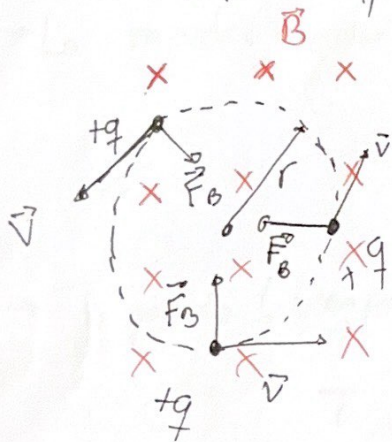 B
+q
V
F_B
r
V
F_B
+q
F_B
V
+q